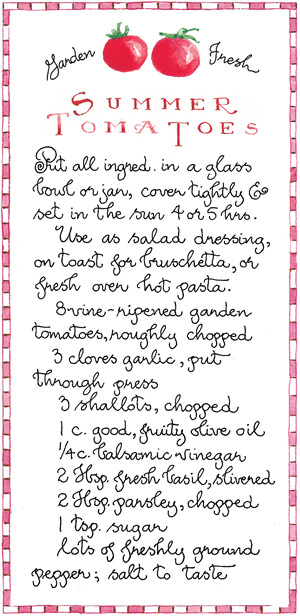 Garden Fresh
SUMMER
TOMATOES
Put all ingred. in a glass
bowl or jar, cover tightly &
set in the sun 4 or 5 hrs.
Use as salad dressing,
on toast for bruschetta, or
fresh over hot pasta.
8 vine-ripened garden
tomatoes, roughly chopped
3 cloves garlic, put
through press
3 shallots, chopped
1 c. good, fruity olive oil
1/4 c. balsamic vinegar
2 Tbsp. fresh basil, slivered
2 Tbsp. parsley, chopped
1 tsp. sugar
lots of freshly ground
pepper; salt to taste